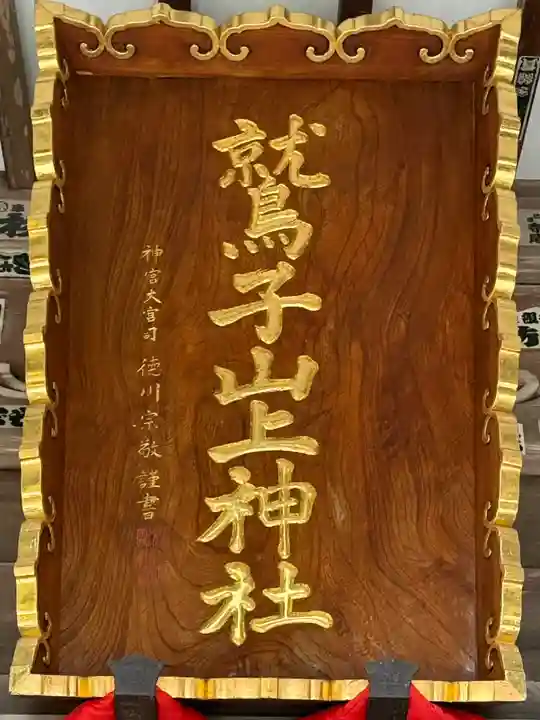 鷲子山上神社
神宮大宮司 徳川宗敬 謹書